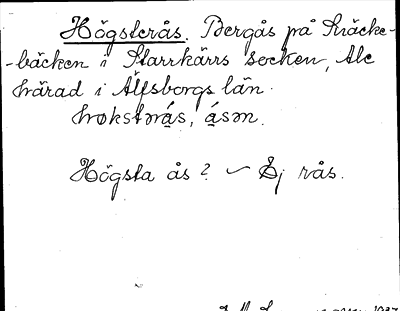 Högsterås. Bergås på Kräcke-
-bäcken i Starrkärrs socken, Ale
härad i Älfsborgs län.
høkstərás, ásən.
Högsta ås? ~ Ej rås.